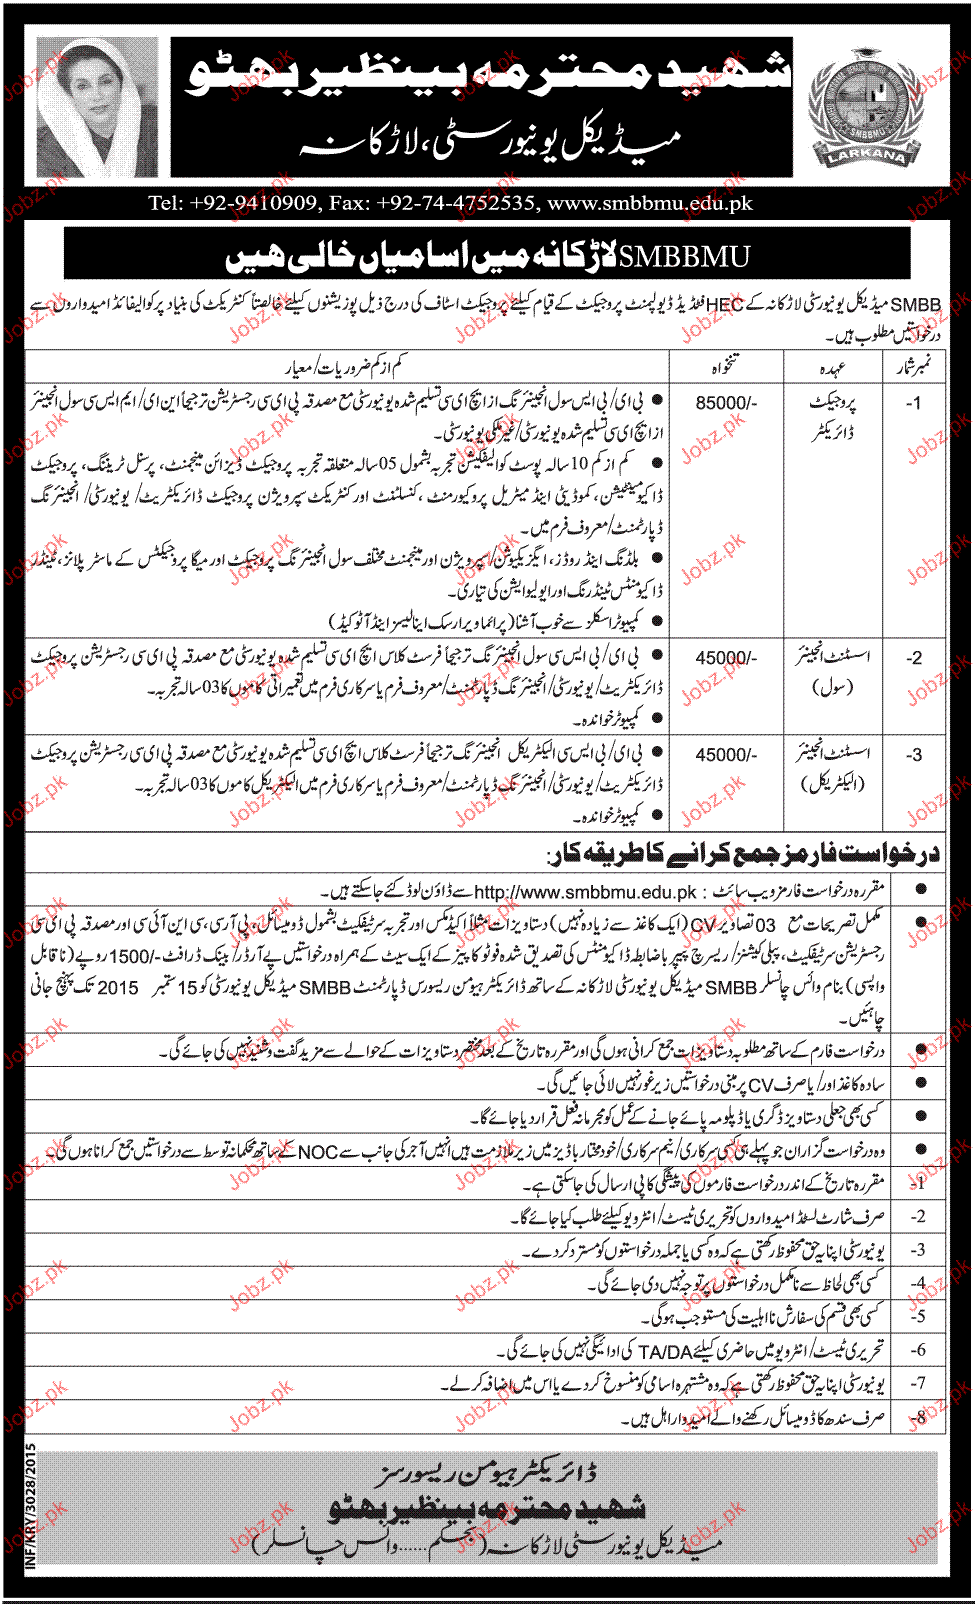 شہید محترمہ بینظیر بھٹو
میڈیکل یونیورسٹی، لاڑکانہ
LARKANA
Tel: +92-9410909, Fax: +92-74-4752535, www.smbbmu.edu.pk
SMBBMU لاڑکانہ میں اسامیاں خالی ہیں
SMBB میڈیکل یونیورسٹی لاڑکانہ کے HEC فنڈیڈ ڈیولپمنٹ پروجیکٹ کے قیام کیلئے پروجیکٹ اسٹاف کی درج ذیل پوزیشنوں کیلئے خالصتاً کنٹریکٹ کی بنیاد پر کوالیفائڈ امیدواروں سے
درخواستیں مطلوب ہیں۔
نمبر شمار عہدہ تنخواہ کم از کم ضروریات/معیار
1- پروجیکٹ ڈائریکٹر 85000/- ● بی ای/بی ایس سول انجینئرنگ از ایچ ای سی تسلیم شدہ یونیورسٹی مع مصدقہ پی ای سی رجسٹریشن ترجیحاً این ای/ایم ایس سی سول انجینئر
از ایچ ای سی تسلیم شدہ یونیورسٹی/غیر ملکی یونیورسٹی۔
● کم از کم 10 سالہ پوسٹ کوالیفکیشن تجربہ بشمول 05 سالہ متعلقہ تجربہ پروجیکٹ ڈیزائن مینجمنٹ، پرسنل ٹریننگ، پروجیکٹ
ڈاکیومینٹیشن، کموڈیٹی اینڈ میٹریل پروکیورمنٹ، کنسلٹنٹ اور کنٹریکٹ سپرویژن پروجیکٹ ڈائریکٹریٹ/یونیورسٹی/انجینئرنگ
ڈپارٹمنٹ/معروف فرم میں۔
● بلڈنگ اینڈ روڈز، ایگزیکیوشن/سپرویژن اور مینجمنٹ مختلف سول انجینئرنگ پروجیکٹ اور میگا پروجیکٹس کے ماسٹر پلانز، ٹینڈر
ڈاکیومنٹس ٹینڈرنگ اور ایولیوایشن کی تیاری۔
● کمپیوٹر اسکلز سے خوب آشنا (پرائماویرا رسک اینالیسز اینڈ آٹو کیڈ)
2- اسسٹنٹ انجینئر (سول) 45000/- ● بی ای/بی ایس سی سول انجینئرنگ ترجیحاً فرسٹ کلاس ایچ ای سی تسلیم شدہ یونیورسٹی مع مصدقہ پی ای سی رجسٹریشن پروجیکٹ
ڈائریکٹریٹ/یونیورسٹی/انجینئرنگ ڈپارٹمنٹ/معروف فرم یا سرکاری فرم میں تعمیراتی کاموں کا 03 سالہ تجربہ۔
● کمپیوٹر خواندہ۔
3- اسسٹنٹ انجینئر (الیکٹریکل) 45000/- ● بی ای/بی ایس سی الیکٹریکل انجینئرنگ ترجیحاً فرسٹ کلاس ایچ ای سی تسلیم شدہ یونیورسٹی مع مصدقہ پی ای سی رجسٹریشن پروجیکٹ
ڈائریکٹریٹ/یونیورسٹی/انجینئرنگ ڈپارٹمنٹ/معروف فرم یا سرکاری فرم میں الیکٹریکل کاموں کا 03 سالہ تجربہ۔
● کمپیوٹر خواندہ۔
درخواست فارمز جمع کرانے کا طریقہ کار:
● مقررہ درخواست فارمز ویب سائٹ : http://www.smbbmu.edu.pk سے ڈاؤن لوڈ کئے جاسکتے ہیں۔
● مکمل تصریحات مع 03 تصاویر CV (ایک کاغذ سے زیادہ نہیں) دستاویزات مثلاً اکیڈمکس اور تجربہ سرٹیفکیٹ بشمول ڈومیسائل، پی آر سی، سی این آئی سی اور مصدقہ پی ای سی
رجسٹریشن سرٹیفکیٹ، پبلی کیشنز/ریسرچ پیپر باضابطہ ڈاکیومنٹس کی تصدیق شدہ فوٹو کاپیز کے ایک سیٹ کے ہمراہ درخواستیں پے آرڈر/بینک ڈرافٹ -/1500 روپے (ناقابل
واپسی) بنام وائس چانسلر SMBB میڈیکل یونیورسٹی لاڑکانہ کے ساتھ ڈائریکٹر ہیومن ریسورس ڈپارٹمنٹ SMBB میڈیکل یونیورسٹی کو 15 ستمبر 2015 تک پہنچ جانی
چاہئیں۔
● درخواست فارم کے ساتھ مطلوبہ دستاویزات جمع کرانی ہوں گی اور مقررہ تاریخ کے بعد مختصر دستاویزات کے حوالے سے مزید گفت و شنید نہیں کی جائے گی۔
● سادہ کاغذ اور/یا صرف CV پر مبنی درخواستیں زیر غور نہیں لائی جائیں گی۔
● کسی بھی جعلی دستاویز ڈگری یا ڈپلومہ پائے جانے کے عمل کو مجرمانہ فعل قرار دیا جائے گا۔
● وہ درخواست گزاران جو پہلے ہی کسی سرکاری/نیم سرکاری/خود مختار باڈیز میں زیر ملازمت ہیں انہیں آجر کی جانب سے NOC کے ساتھ محکمانہ توسط سے درخواستیں جمع کرانا ہوں گی۔
1- مقررہ تاریخ کے اندر درخواست فارموں کی پیشگی کاپی ارسال کی جاسکتی ہے۔
2- صرف شارٹ لسٹڈ امیدواروں کو تحریری ٹیسٹ/انٹرویو کیلئے طلب کیا جائے گا۔
3- یونیورسٹی اپنا یہ حق محفوظ رکھتی ہے کہ وہ کسی یا جملہ درخواستوں کو مسترد کردے۔
4- کسی بھی لحاظ سے نامکمل درخواستوں پر توجہ نہیں دی جائے گی۔
5- کسی بھی قسم کی سفارش نااہلیت کی مستوجب ہوگی۔
6- تحریری ٹیسٹ/انٹرویو میں حاضری کیلئے TA/DA کی ادائیگی نہیں کی جائے گی۔
7- یونیورسٹی اپنا یہ حق محفوظ رکھتی ہے کہ وہ مشتہرہ اسامی کو منسوخ کردے یا اس میں اضافہ کرلے۔
8- صرف سندھ کا ڈومیسائل رکھنے والے امیدوار اہل ہیں۔
ڈائریکٹر ہیومن ریسورسز
شہید محترمہ بینظیر بھٹو
میڈیکل یونیورسٹی لاڑکانہ (بحکم......وائس چانسلر)
INF/KRY/3028/2015
Jobz.pk